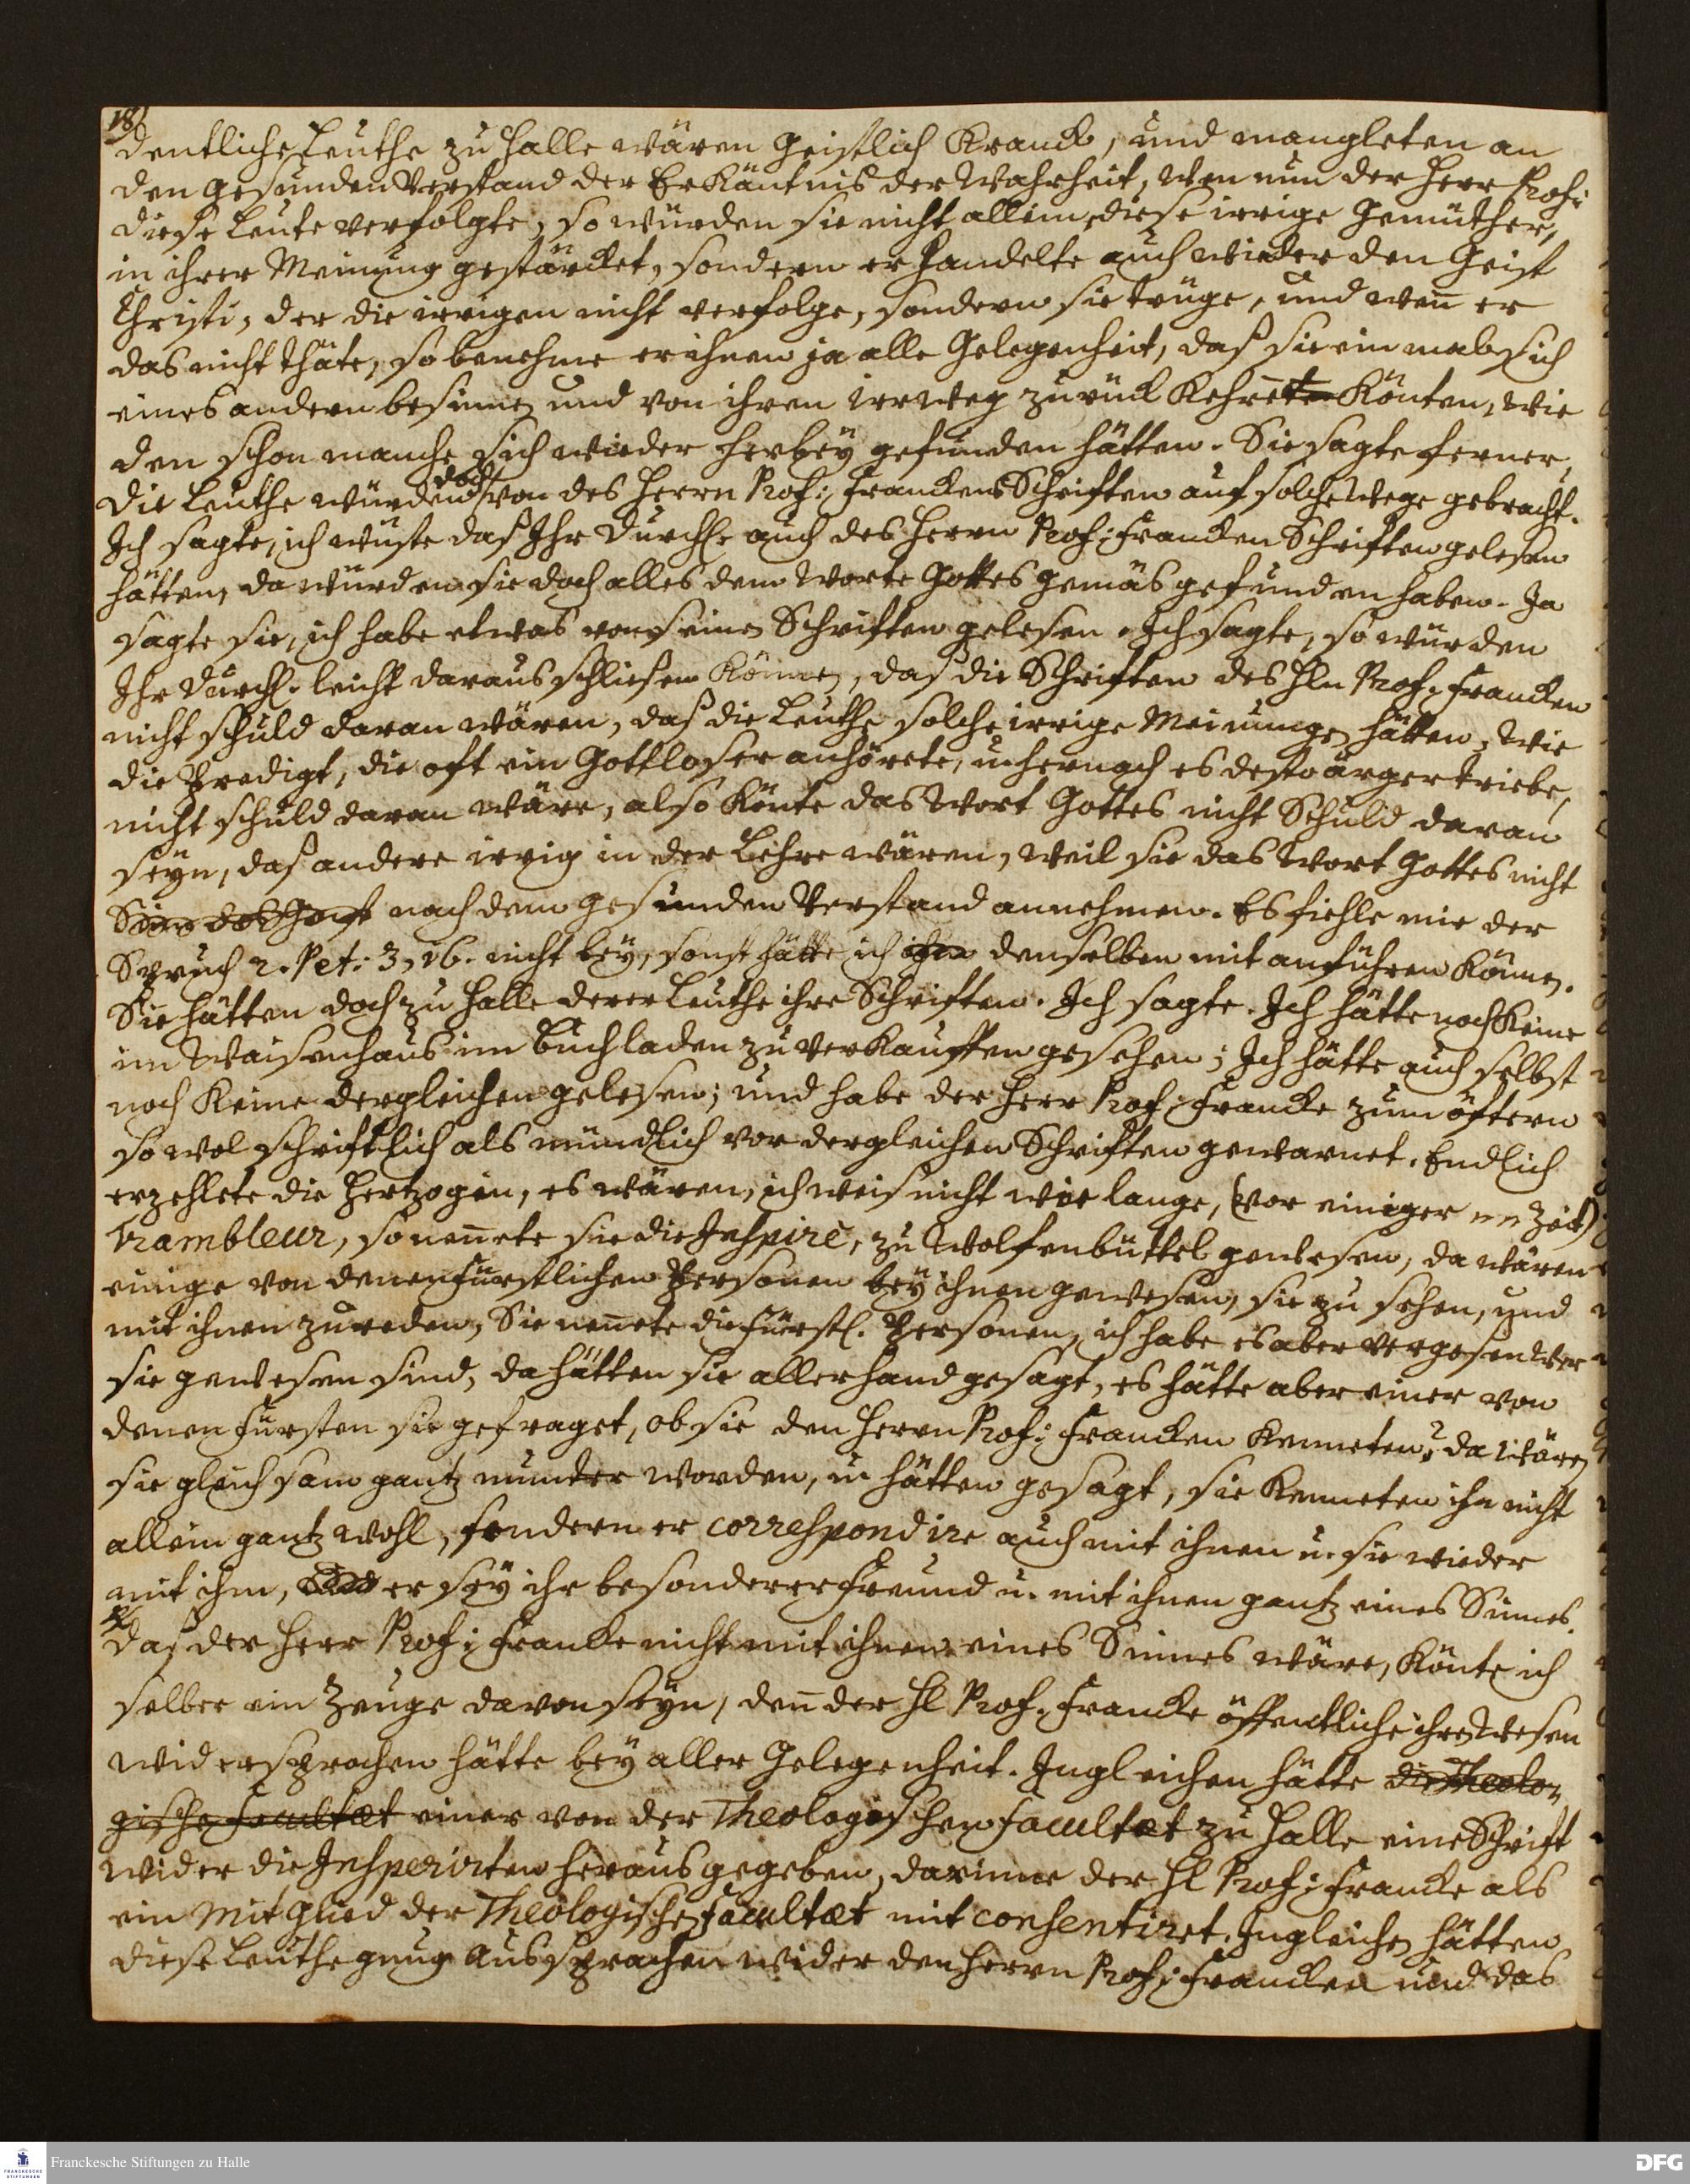 18)
dentliche Leuthe zu Halle wären Geistlich Kranck, und mangleten an
den gesunden Verstand der Erkäntnis der Wahrheit, wen nun der Herr Prof:
diese Leute verfolgte, so würden sie nicht allein, diese irrige Gemüther,
in ihrer Meinung gestärcket, sondern er handelte auch wieder den Geist
Christi, der die irrigen nicht verfolge, sondern sie trüge, und wen̄ er
das nicht thäte, so benehme er ihnen ja alle Gelegenheit, daß sie ein mal sich
eines andern besinnen und von ihren irrweg zurück Kehren Könten, wie
den schon manche sich wieder herbeÿ gefunden hätten. Sie sagte ferner,
die Leuthe würden doch von des Herrn Prof: Franckens Schriften auf solche Wege gebracht.
Ich sagte, ich wüste daß Ihr Durchl. auch des Herrn Prof: Francken Schriften gelesen
hätten, da würden sie doch alles dem Worte Gottes gemäs gefunden haben. Ja
sagte sie, ich habe etwas von seinen Schriften gelesen. Ich sagte, so würden
Ihr Durchl. leicht daraus schliesen Können, daß die Schriften des Hln Prof. Francken
nicht schuld daran wären, daß die Leuthe solche irrige Meinungen hätten, wie
die Predigt, die oft ein Gottloser anhörete, u. hernach es desto ärger triebe,
nicht schuld daran wäre, also Könte das Wort Gottes nicht Schuld daran
seÿn, daß andere irrig in der Lehre wären, weil sie das Wort Gottes nicht
nach dem gesunden Verstand annehmen. Es fiehle mir der
Spruch 2. Pet: 3, 16. nicht beÿ, sonst hätte ich denselben mit anführen Können.
Sie hätten doch zu Halle derer Leuthe ihre Schriften. Ich sagte. Ich hätte noch Keine
im Waisenhaus im Buchladen zu verkauffen gesehen; Ich hätte auch selbst
noch Keine dergleichen gelesen; und habe der Herr Prof: Francke zum öftern
so wol schriftlich als mündlich vor dergleichen Schriften gewarnet. Endlich
erzehlete die Hertzogin, es wären, ich weis nicht wie lange, (vor einiger Zeit)
Trambleur, so nen̄ete sie die Inspire, zu Wolfenbüttel gewesen, da wären
einige von denen Fürstlichen Personen beÿ ihnen gewesen, sie zu sehen, und
mit ihnen zu reden, Sie nen̄ete die Fürstl. Personen, ich habe es aber vergesen wer
sie gewesen sind, da hätten sie allerhand gesagt, es hätte aber einer von
denen Fürsten sie gefraget, ob sie den Herrn Prof: Francken Kenneten? da wären
sie gleichsam gantz munter worden, u. hätten gesagt, sie Kenneten ihn nicht
allein gantz wohl, sondern er correspondire auch mit ihnen u. sie wieder
mit ihm, er seÿ ihr besonderer Freund u. mit ihnen gantz eines Sinnes.
Daß der Herr Prof: Francke nicht mit ihnen eines Sinnes wäre, Könte ich
selber ein Zeuge davon seÿn, den̄ der Hl Prof. Francke öffentliche ihrem Wesen
widersprochen hätte beÿ aller Gelegenheit. Ingleichen hätte die Theolo-
gische Facultæt einer von der Theologischen Facultæt zu Halle eine Schrift
wider die Insperirten heraus gegeben, darinne der Hl Prof: Francke als
ein Mitglied der Theologischen Facultæt mit consentiret. Ingleichen hätten
diese Leuthe gnug Aussprachen wider den Herrn Prof: Francken und das
Franckesche Stiftungen zu Halle
FRANCKESCHE STIFTUNGEN
DFG